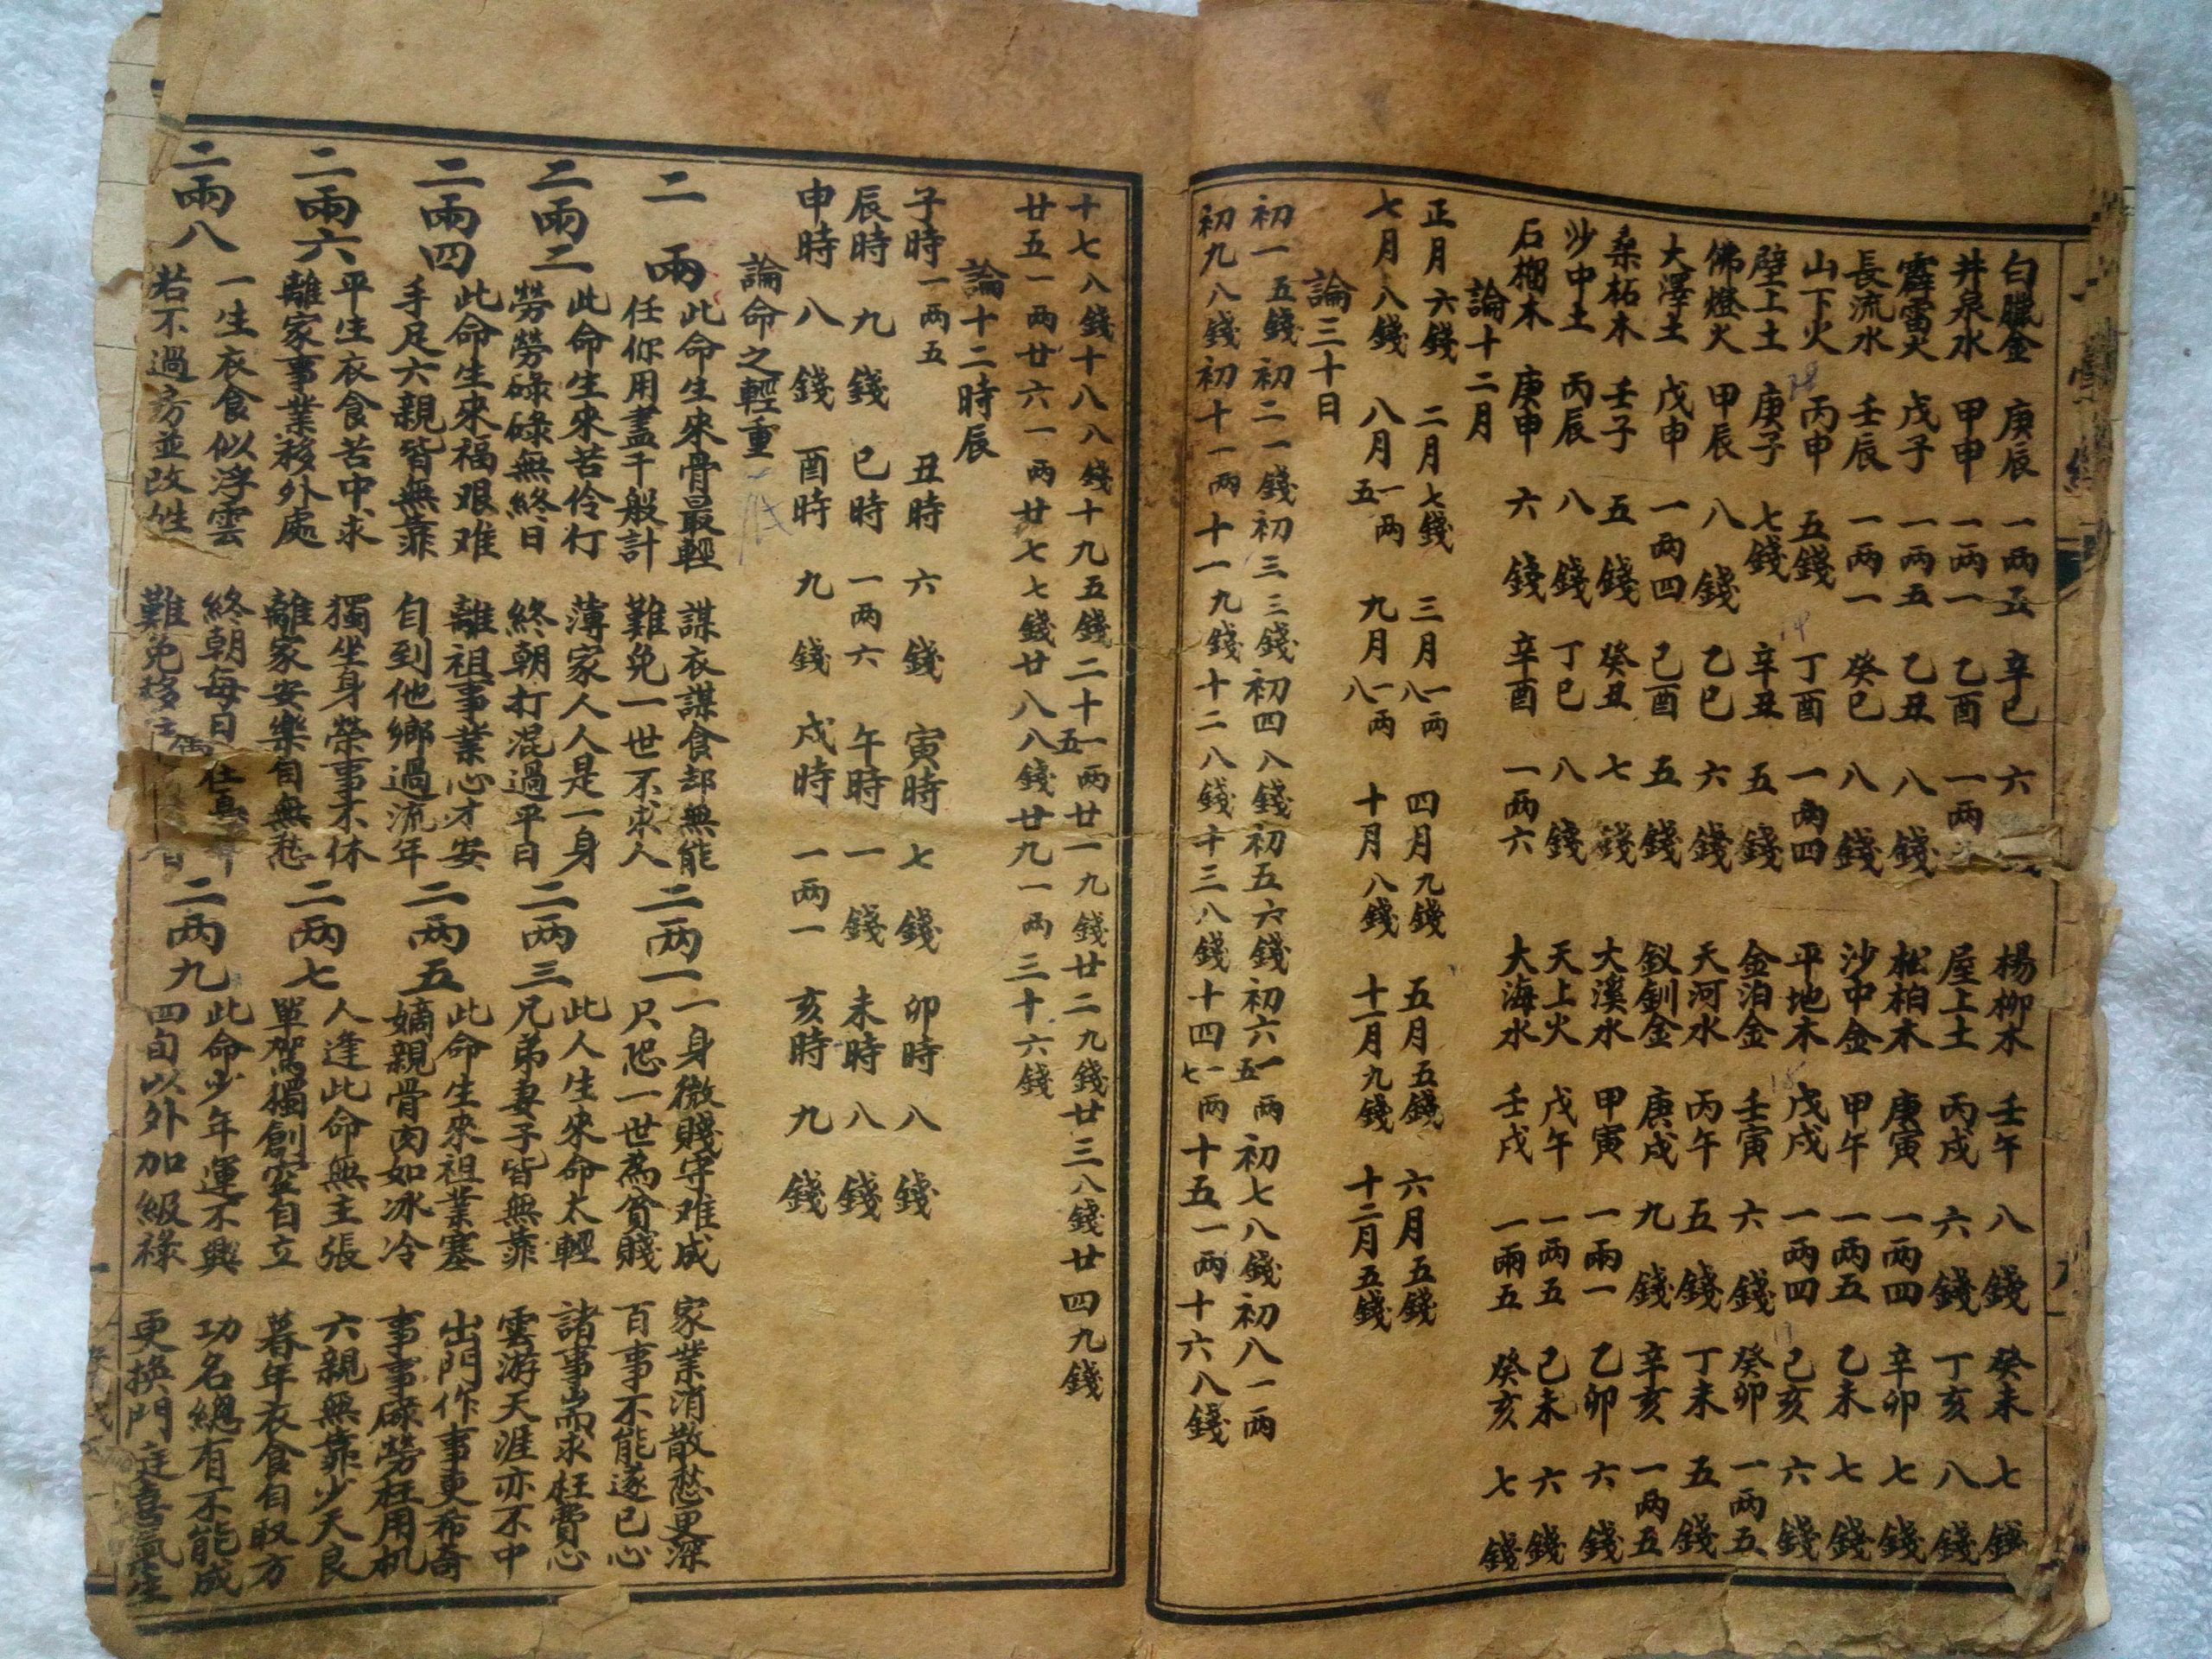 白臘金 庚辰 一两五 辛巳 六 楊柳木 壬午 八錢 癸未 七錢
井泉水 甲申 一两一 乙酉 一两 屋上土 丙戌 六錢 丁亥 八錢
霹雷火 戊子 一两五 乙丑 八錢 松柏木 庚寅 一两四 辛卯 七錢
長流水 壬辰 一两一 癸巳 八錢 沙中金 甲午 一两五 乙未 七錢
山下火 丙申 五錢 丁酉 一两四 平地木 戊戌 一两四 己亥 六錢
壁上土 庚子 七錢 辛丑 五錢 金泊金 壬寅 六錢 癸卯 一两五
佛燈火 甲辰 八錢 乙巳 六錢 天河水 丙午 五錢 丁未 五錢
大澤土 戊申 一两四 己酉 五錢 釵釧金 庚戌 九錢 辛亥 一两五
桑柘木 壬子 五錢 癸丑 七錢 大溪水 甲寅 一兩一 乙卯 六錢
沙中土 丙辰 八錢 丁巳 八錢 天上火 戊午 一两五 己未 六錢
石榴木 庚申 六錢 辛酉 一两六 大海水 壬戌 一兩五 癸亥 七錢
論十二月
正月六錢 二月七錢 三月一两八 四月九錢 五月五錢 六月五錢
七月八錢 八月一两五 九月一两八 十月八錢 十一月九錢 十二月五錢
論三十日
初一五錢初二一錢初三三錢初四八錢初五六錢初六一两五初七八錢初八一两
初九八錢初十一两十一九錢十二八錢十三八錢十四一两七十五一两十六八錢
十七八錢十八八錢十九五錢二十一两五廿一九錢廿二九錢廿三八錢廿四九錢
廿五一两廿六一两廿七七錢廿八八錢廿九一两三十六錢
論十二時辰
子時一两五 丑時六錢 寅時七錢 卯時八錢
辰時九錢 巳時一两六 午時一錢 未時八錢
申時八錢 酉時九錢 戌時一两一 亥時九錢
論命之輕重
二兩
此命生來骨最輕 謀衣謀食却無能
任你用盡千般計 難免一世不求人
二两一
一身微賤守难成 家業消散愁更深
只恐一世為貧賤 百事不能遂己心
二兩二
此命生來苦伶仃 薄家人人是一身
勞勞碌碌無終日 終朝打混過平日
二两三
此人生來命太輕 諸事耑求枉費心
兄弟妻子皆無靠 雲游天涯亦不中
二兩四
此命生來福艰难 離祖事業心才安
手足六親皆無靠 自到他鄉過流年
二两五
此命生來祖業塞 出門作事更希奇
嫡親骨肉如冰冷 事事碌勞枉用机
二兩六
平生衣食苦中求 獨坐身榮事不休
離家事業移外處 離家安樂自無愁
二两七
人逢此命無主張 六親無靠少天良
單駕獨創安自立 暮年衣食自取方
二兩八
一生衣食似浮雲 終朝每日
若不過房並改姓 難免移
二两九
此命少年運不興 功名總有不能成
四旬以外加級祿 更換門庭喜氣生